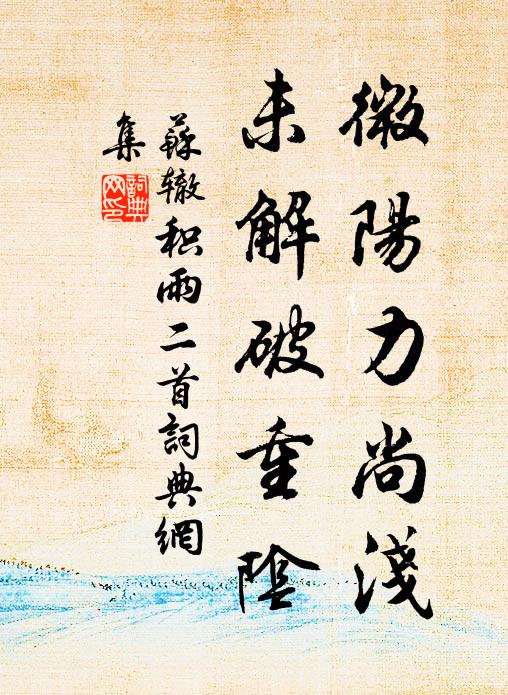 微陽力尚淺
未解破重陰
蘇辙积雨二首詞典網
集
詞典
网印